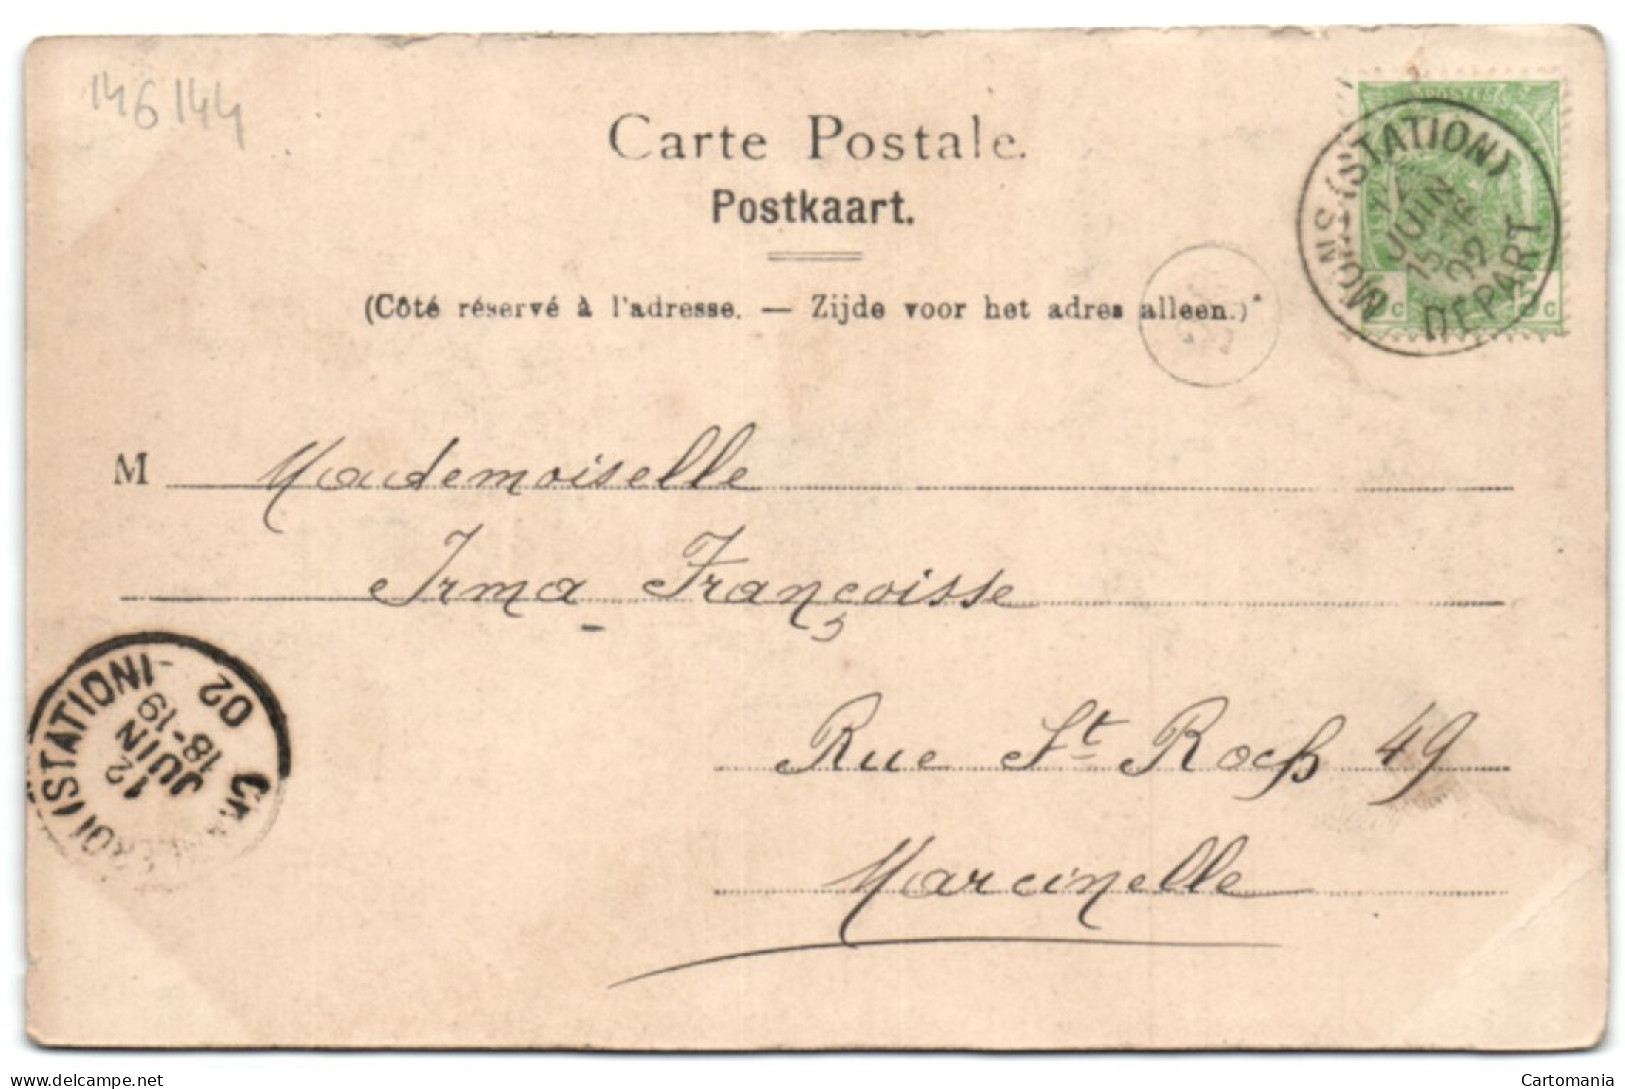 146144
Carte Postale.
Postkaart.
(Côté réservé à l'adresse. — Zijde voor het adres alleen.)
POSTES
MONS (STATION)
JUIN
DEPART
M Mademoiselle
Irma Françoisse
Rue St Roch 49
Marcinelle
(STATION)
12
JUIN
18-19
02
Cartomania